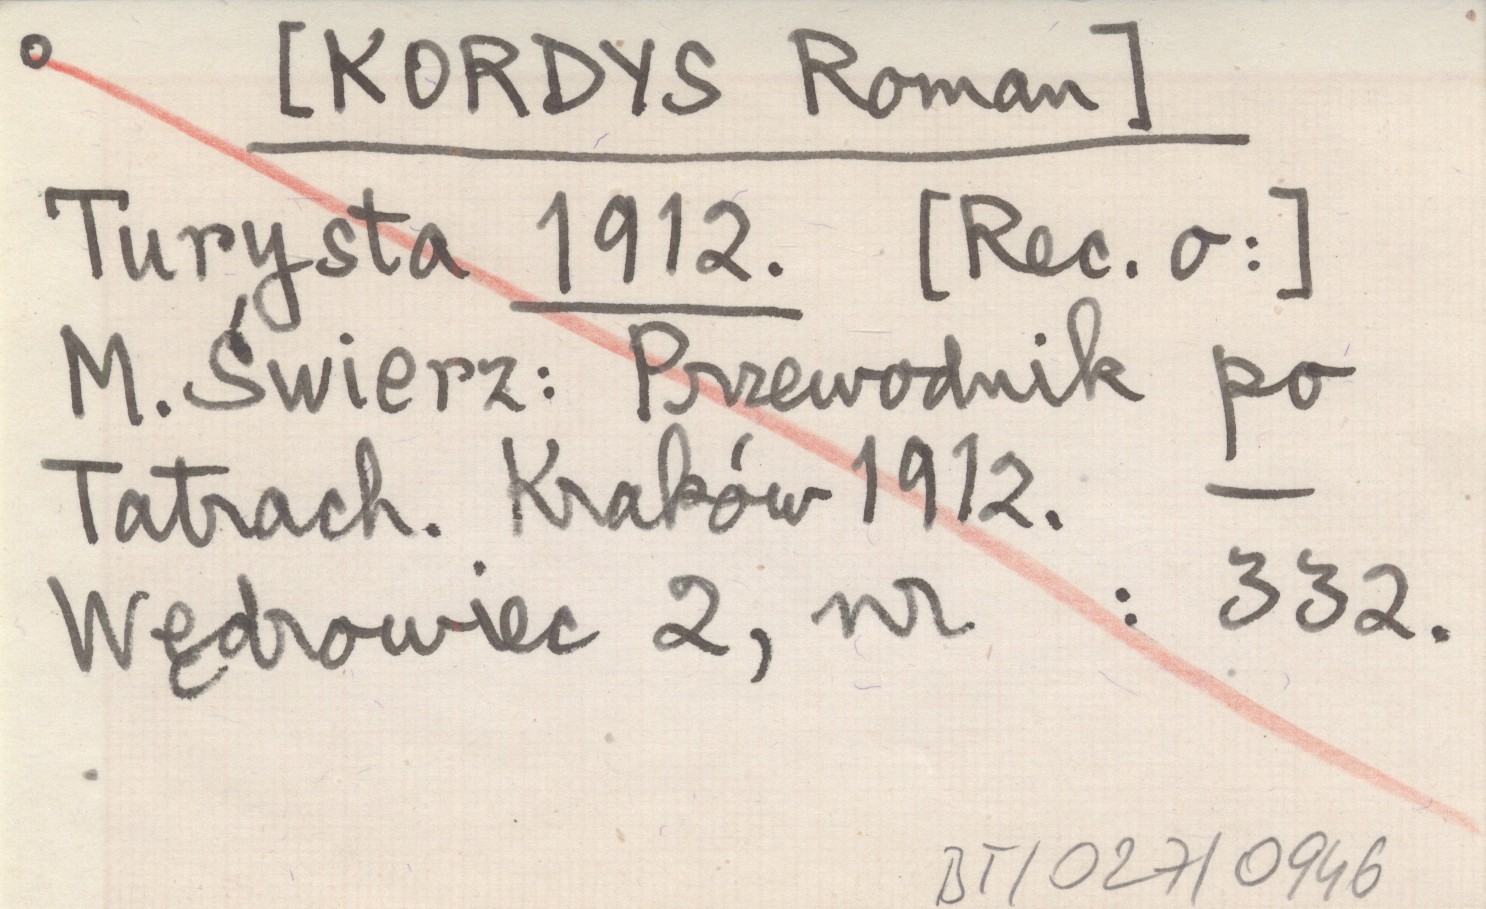 [KORDYS Roman]
Turysta 1912. [Rec. o:]
M. Świerz: Przewodnik po
Tatrach. Kraków 1912. —
Wędrowiec 2, nr : 332.
BT/027/0946